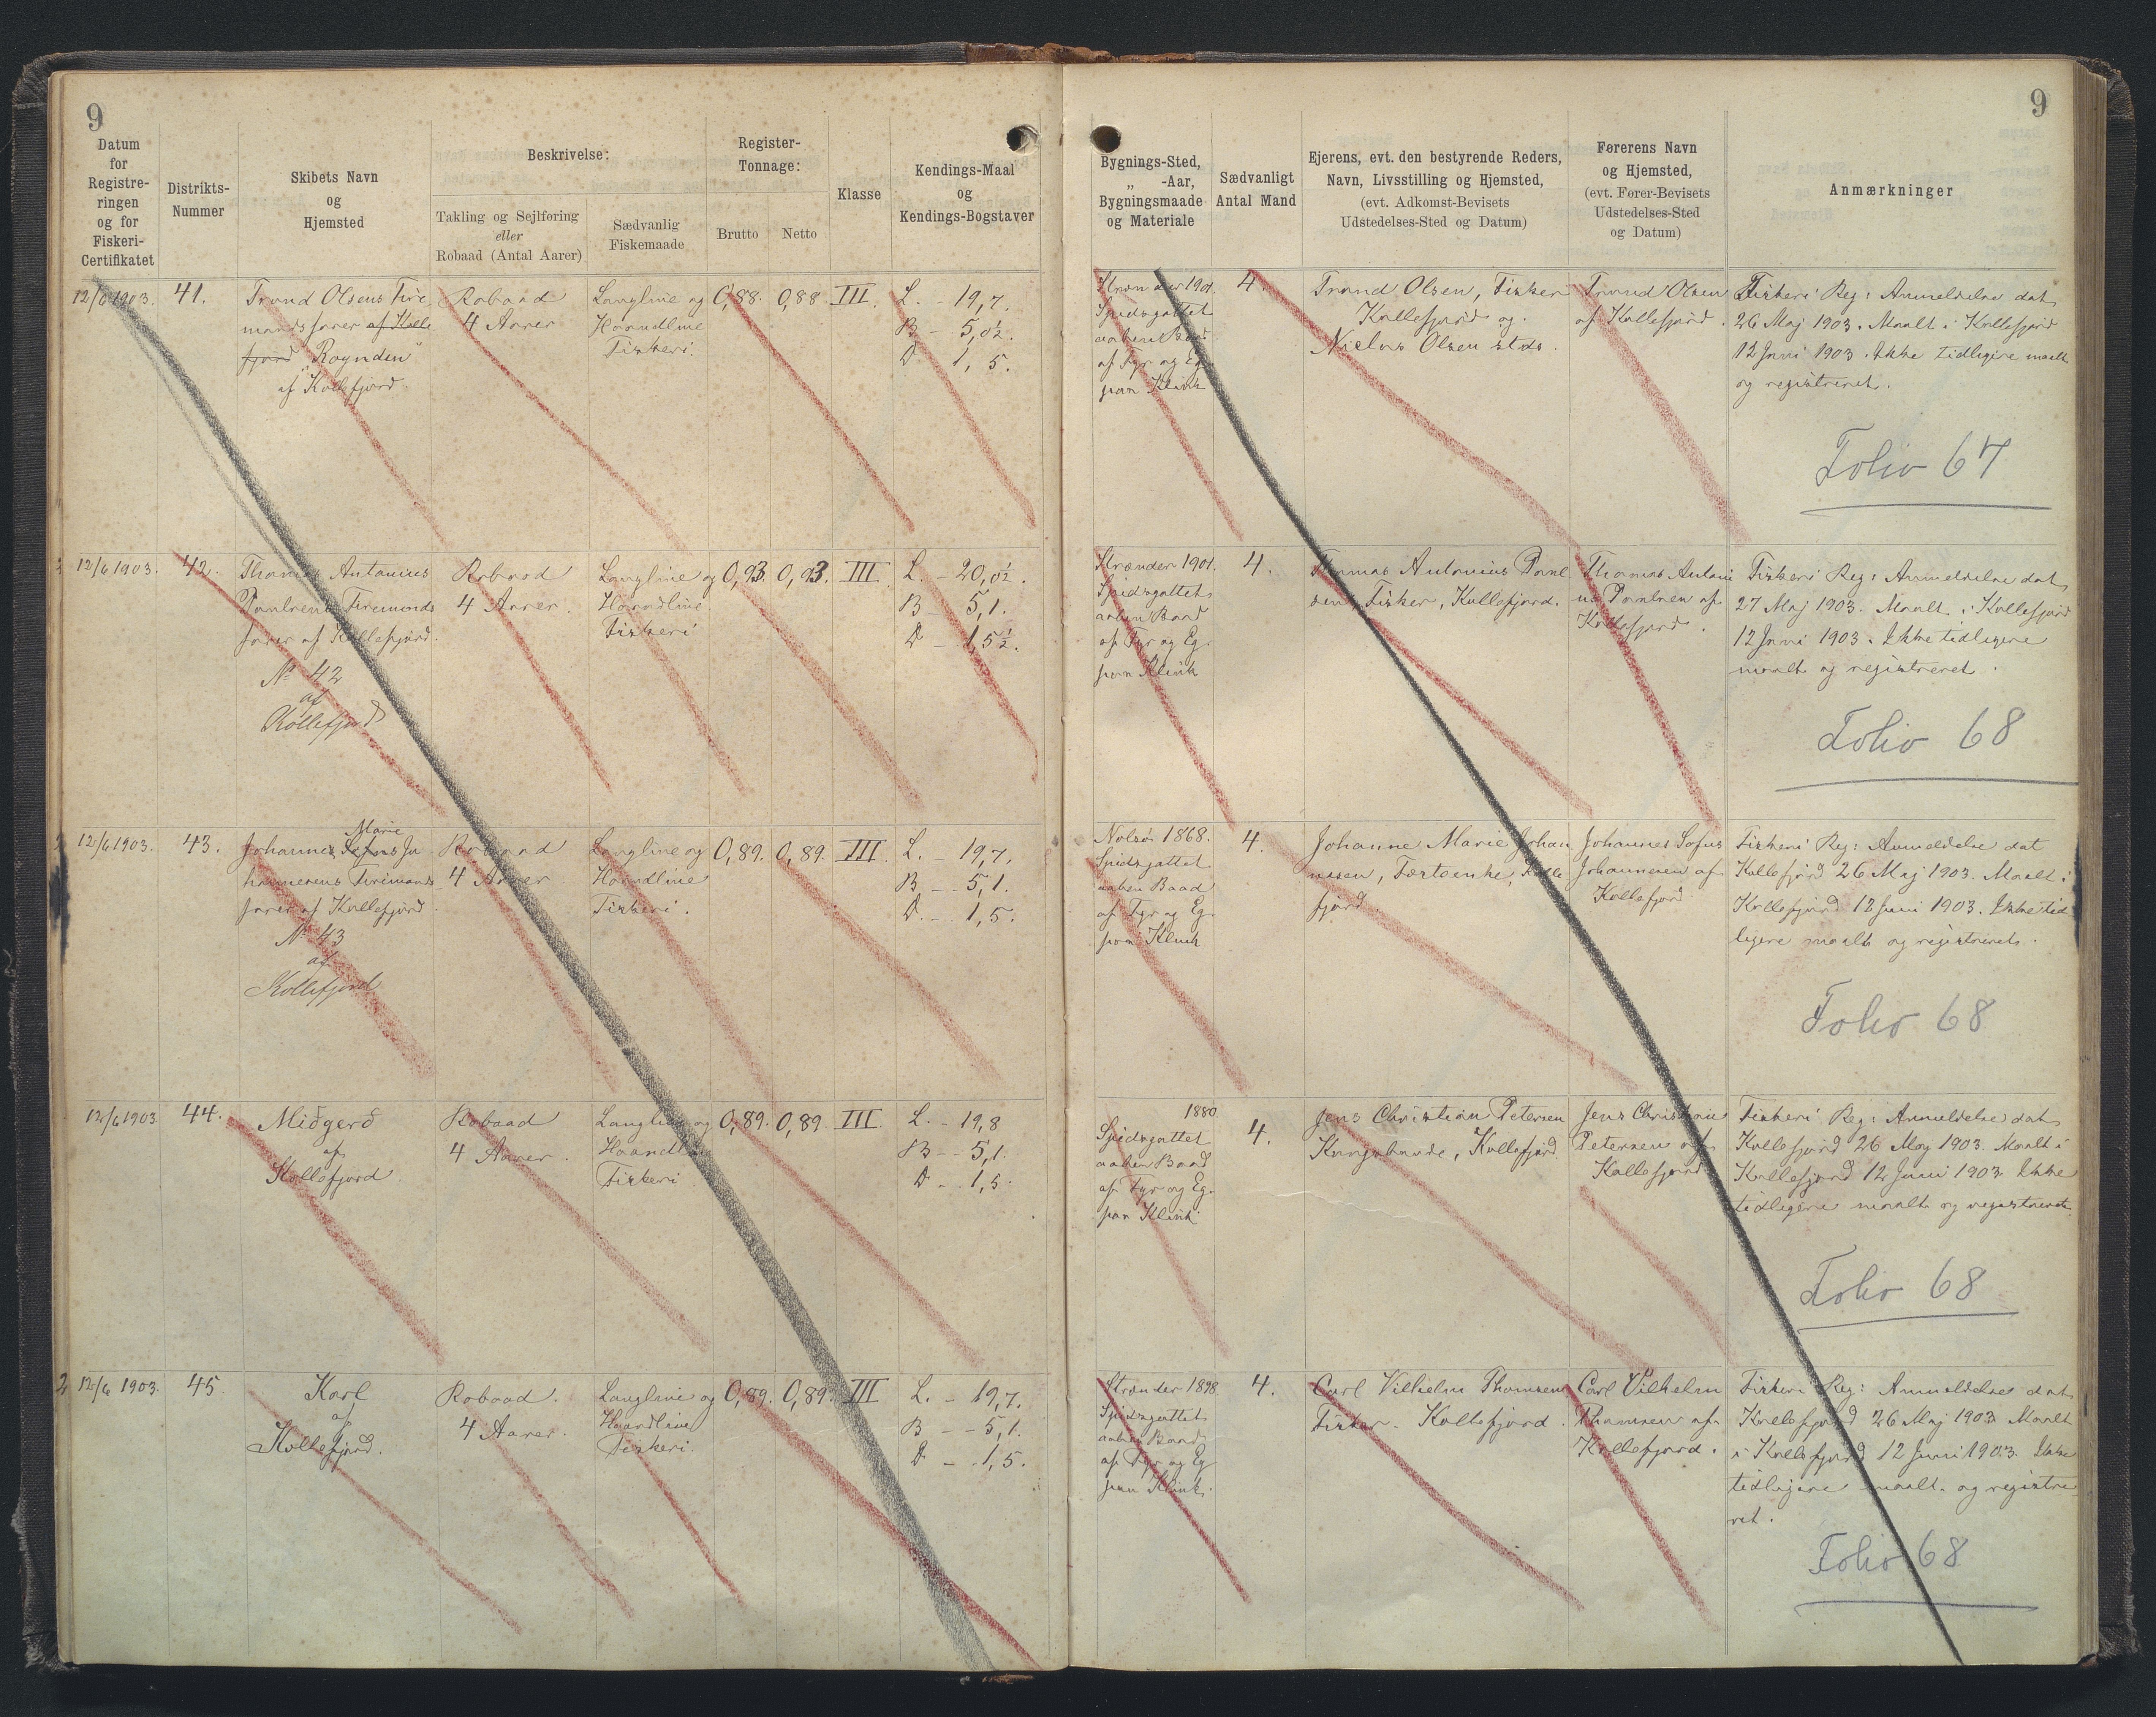 9
9
Datum
for
Registre-
ringen
og for
Fiskeri-
Certifikatet
Distrikts-
Nummer
Skibets Navn
og
Hjemsted
Beskrivelse:
Takling og Sejlføring
eller
Robaad (Antal Aarer)
Sædvanlig
Fiskemaade
Register-
Tonnage:
Brutto
Netto
Klasse
Kendings-Maal
og
Kendings-Bogstaver
Bygnings-Sted,
„ -Aar,
Bygningsmaade
og Materiale
Sædvanligt
Antal Mand
Ejerens, evt. den bestyrende Reders,
Navn, Livsstilling og Hjemsted,
(evt. Adkomst-Bevisets
Udstedelses-Sted og Datum)
Førerens Navn
og Hjemsted,
(evt. Fører-Bevisets
Udstedelses-Sted
og Datum)
Anmærkninger
12/6 1903.
41.
Trond Olsens Tire
mandsfarer af Kolle
fjord "Roynden"
af Kollefjord
Robaad
4 Aarer
Langline og
Haandline
Fiskeri.
0,88.
0,88
III.
L. - 19,7.
B - 5,0½.
D 1,5.
Strænder 1901.
Spidsgattet
aaben Baad
af Fyr og Eg
paa Klink
4.
Trond Olsen, Fisker
Kollefjord og
Niclas Olsen stds.
Trond Olsen
af Kollefjord.
Fiskeri Reg: Anmeldelse dat
26 Maj 1903. Maalt i Kollefjord
12 Juni 1903. Ikke tidligere maalt
og registreret.
Folio 67
12/6 1903.
42.
Thomas Antonius
Poulsens Tiremands
farer af Kollefjord.
No 42
af
Kollefjord
Robaad
4 Aarer.
Langline og
Haandline
Fiskeri
0,93.
0,93.
III
L. - 20,0½.
B - 5,1.
D - 1,5½.
Strænder 1901.
Spidsgattet
aaben Baad
af Fyr og Eg.
paa Klink
4.
Thomas Antonius Poul
sen, Fisker, Kollefjord.
Thomas Antoni
us Poulsen af
Kollefjord.
Fiskeri Reg: Anmeldelse dat
27 Maj 1903. Maalt i Kollefjord
12 Juni 1903. Ikke tidligere
maalt og registreret.
Folio 68
12/6 1903.
43.
Marie
Johannes Sofus Jo
hannesens Tiremans
farer af Kollefjord
No 43
af
Kollefjord
Robaad
4 Aarer
Langline og
Haandline
Fiskeri.
0,89.
0,89.
III.
L. - 19,7.
B. - 5,1.
D. - 1,5.
Nolsø 1868.
Spidsgattet
aaben Baad
af Fyr og Eg.
paa Klink
4.
Johanne Marie Johan
nesen, Kolle
fjord
Johannes Sofus
Johannesen af
Kollefjord
Fiskeri Reg: Anmeldelse dat
Kollefjord 26 Maj 1903. Maalt i
Kollefjord 12 Juni 1903. Ikke tid
ligere maalt og registreret.
Folio 68
12/6 1903
44.
Miðgerð
af
Kollefjord
Robaad
4 Aarer.
Langline og
Haandline
Fiskeri
0,89.
0,89.
III.
L. - 19,8
B - 5,1.
D - 1,5.
1880
Spidsgattet
aaben Baad
af Fyr og Eg.
paa Klink
4.
Jens Christian Petersen
Kongsbonde, Kollefjord
Jens Christian
Petersen af
Kollefjord
Fiskeri Reg: Anmeldelse dat
Kollefjord 26 Maj 1903. Maalt i
Kollefjord 12 Juni 1903. Ikke
tidligere maalt og registreret.
Folio 68
12/6 1903.
45.
Karl
af
Kollefjord.
Robaad.
4 Aarer.
Langline og
Haandline
Fiskeri.
0,89.
0,89.
III
L. - 19,7.
B - 5,1.
D - 1,5.
Strænder 1898
Spidsgattet
aaben Baad
af Fyr og Eg
paa Klink.
4.
Carl Vilhelm Thomsen
Fisker. Kollefjord.
Carl Vilhelm
Thomsen af
Kollefjord.
Fiskeri Reg: Anmeldelse dat
Kollefjord 26 Maj 1903 Maalt
i Kollefjord 12 Juni 1903. Ikke
tidligere maalt og registre
ret.
Folio 68